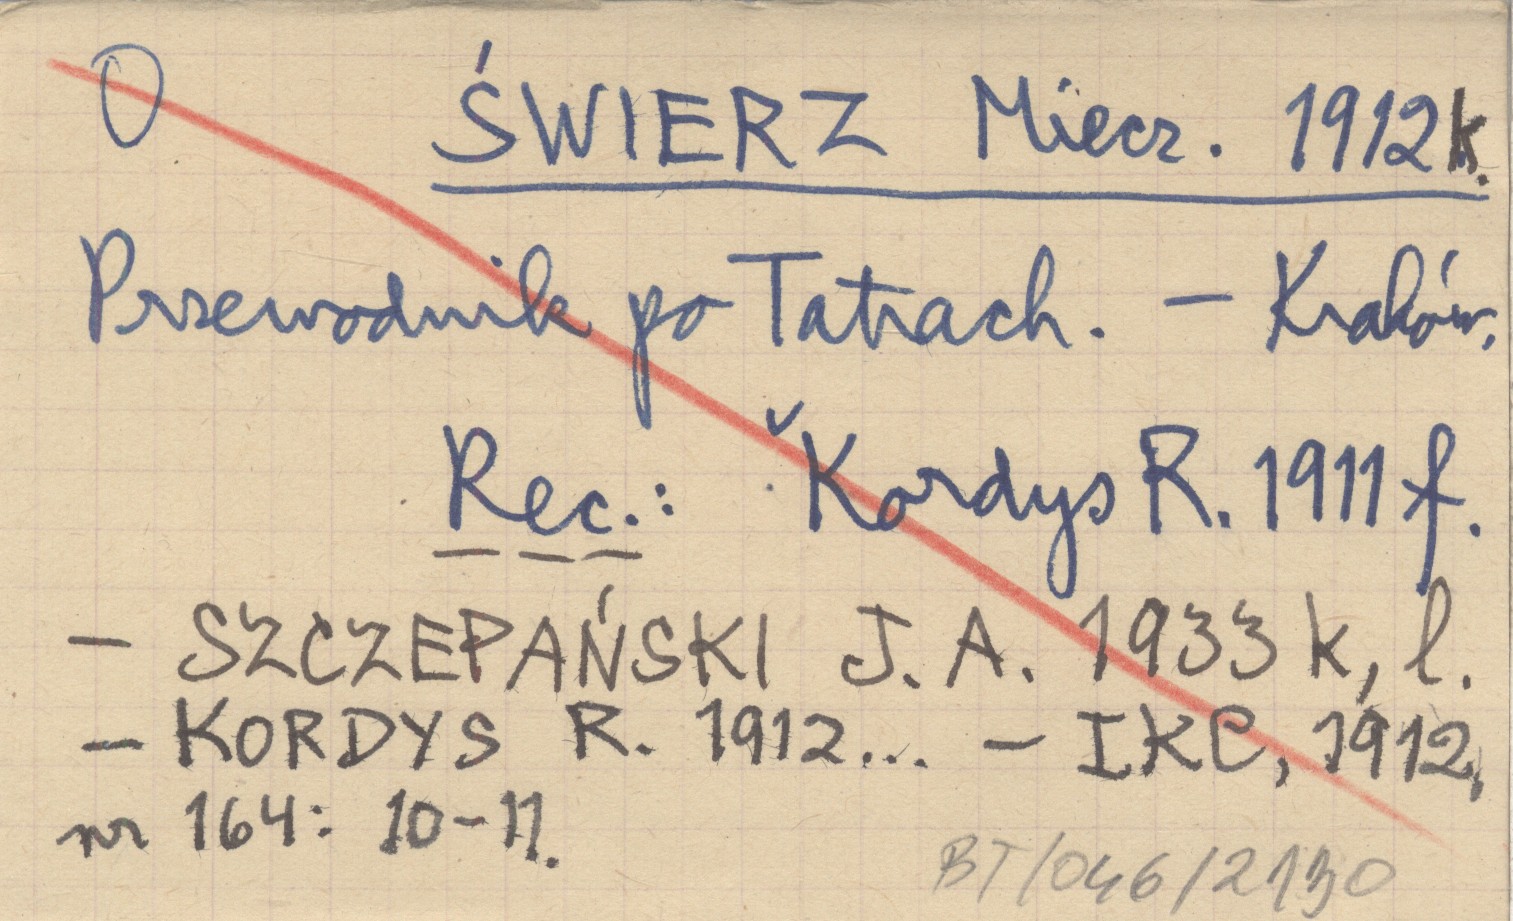 O ŚWIERZ Miecz. 1912k.
Przewodnik po Tatrach. – Kraków.
Rec.: Kordys R. 1911 f.
– SZCZEPAŃSKI J. A. 1933 k, l.
– KORDYS R. 1912... – IKC, 1912,
nr 164: 10–11.
BT/046/2130